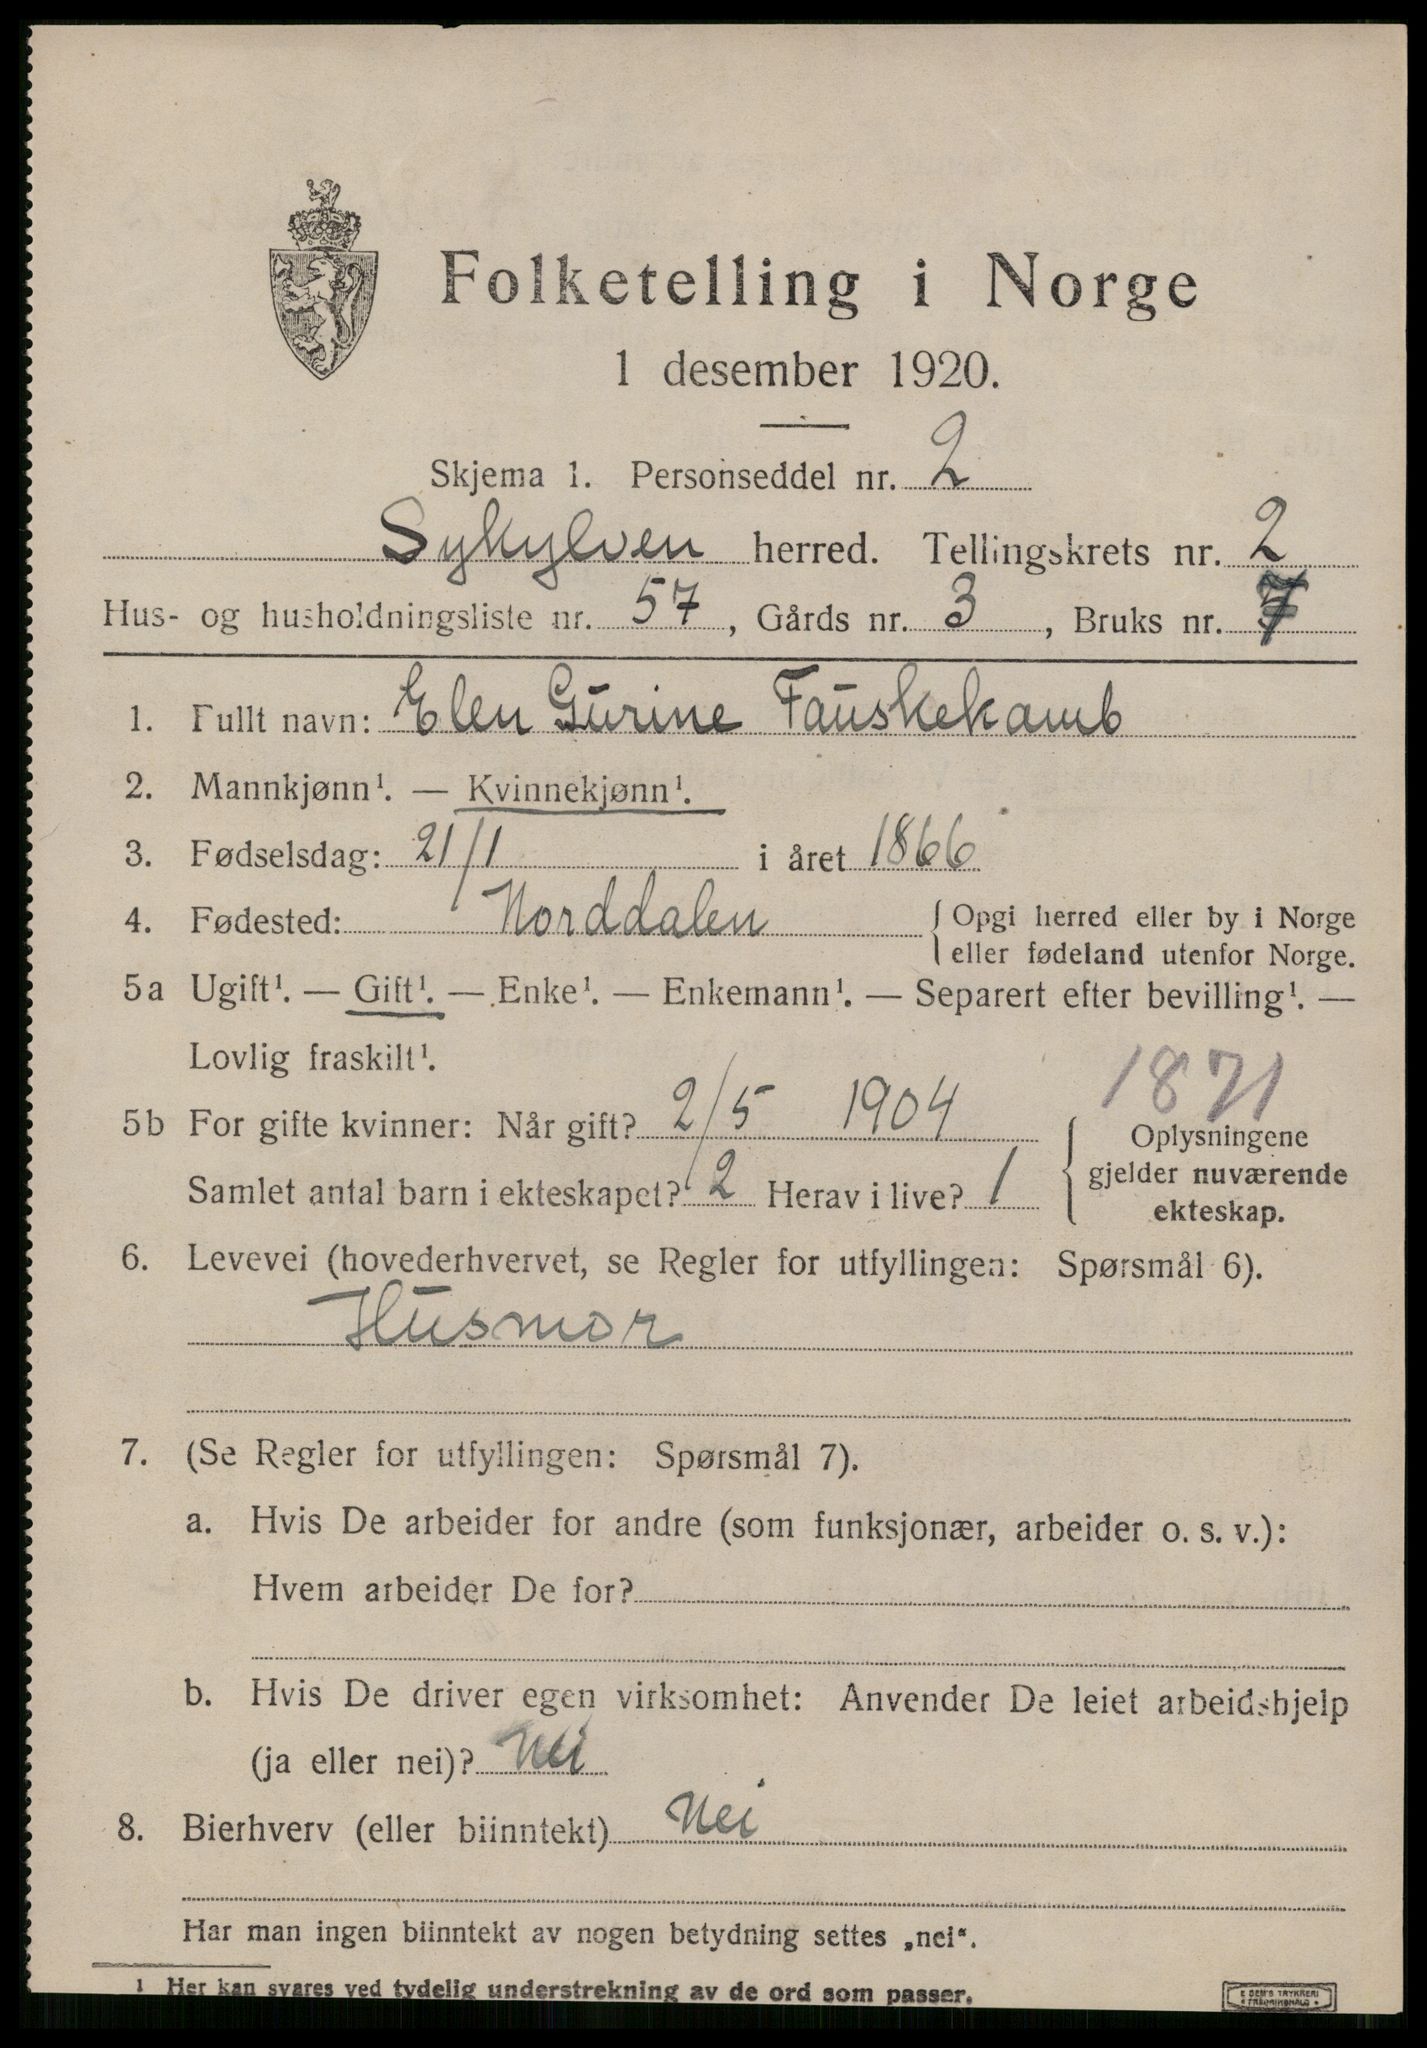 Folketelling i Norge
1 desember 1920.
Skjema 1. Personseddel nr. 2
Sykylven herred. Tellingskrets nr. 2
Hus- og husholdningsliste nr. 57, Gårds nr. 3, Bruks nr. 7
1. Fullt navn: Elen Gurine Fauskekamb
2. Mannkjønn¹. — Kvinnekjønn¹.
3. Fødselsdag: 21/1 i året 1866
4. Fødested: Norddalen { Opgi herred eller by i Norge
eller fødeland utenfor Norge.
5a Ugift¹. — Gift¹. — Enke¹. — Enkemann¹. — Separert efter bevilling¹. —
Lovlig fraskilt¹.
1871
5b For gifte kvinner: Når gift? 2/5 1904
Samlet antal barn i ekteskapet? 2 Herav i live? 1
Oplysningene
gjelder nuværende
ekteskap.
6. Levevei (hovederhvervet, se Regler for utfyllingen: Spørsmål 6).
Husmor
7. (Se Regler for utfyllingen: Spørsmål 7).
a. Hvis De arbeider for andre (som funksjonær, arbeider o. s. v.):
Hvem arbeider De for?
b. Hvis De driver egen virksomhet: Anvender De leiet arbeidshjelp
(ja eller nei)? Nei
8. Bierhverv (eller biinntekt) Nei
Har man ingen biinntekt av nogen betydning settes „nei“.
1 Her kan svares ved tydelig understrekning av de ord som passer.
E SEM'S TRYKKERI
FREDRIKSHALD